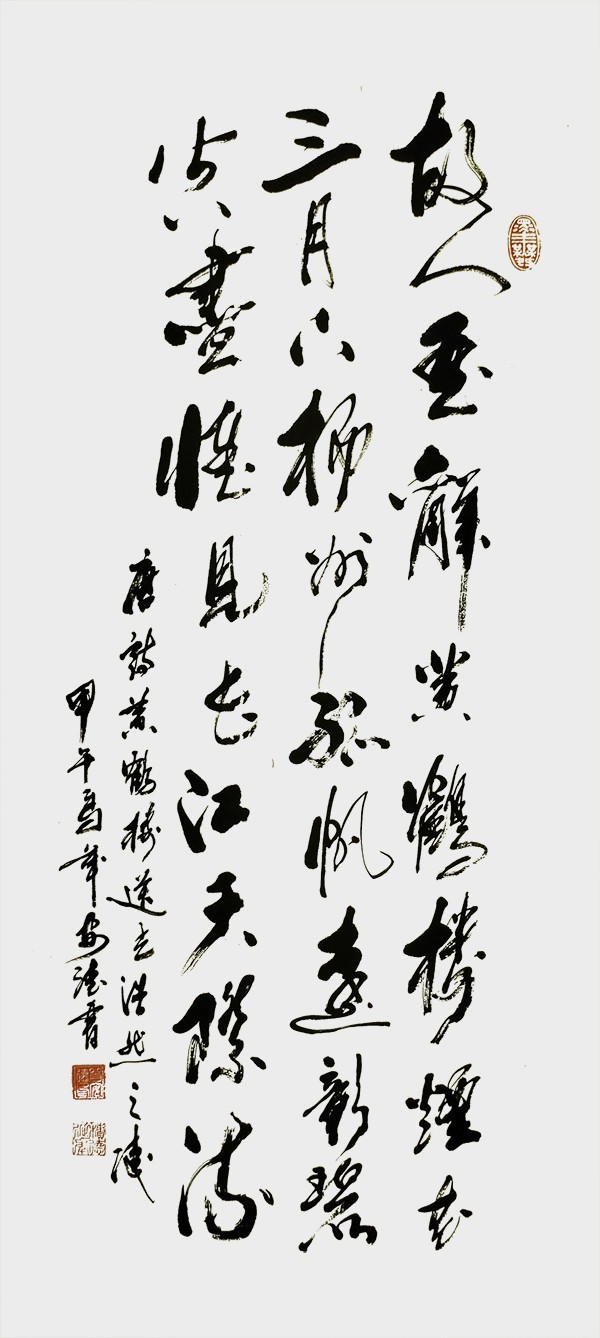 故人西辭黃鶴樓煙花
三月下揚州孤帆遠影碧
空盡惟見長江天際流
唐詩黃鶴樓送孟浩然之陵
甲午馬年安書